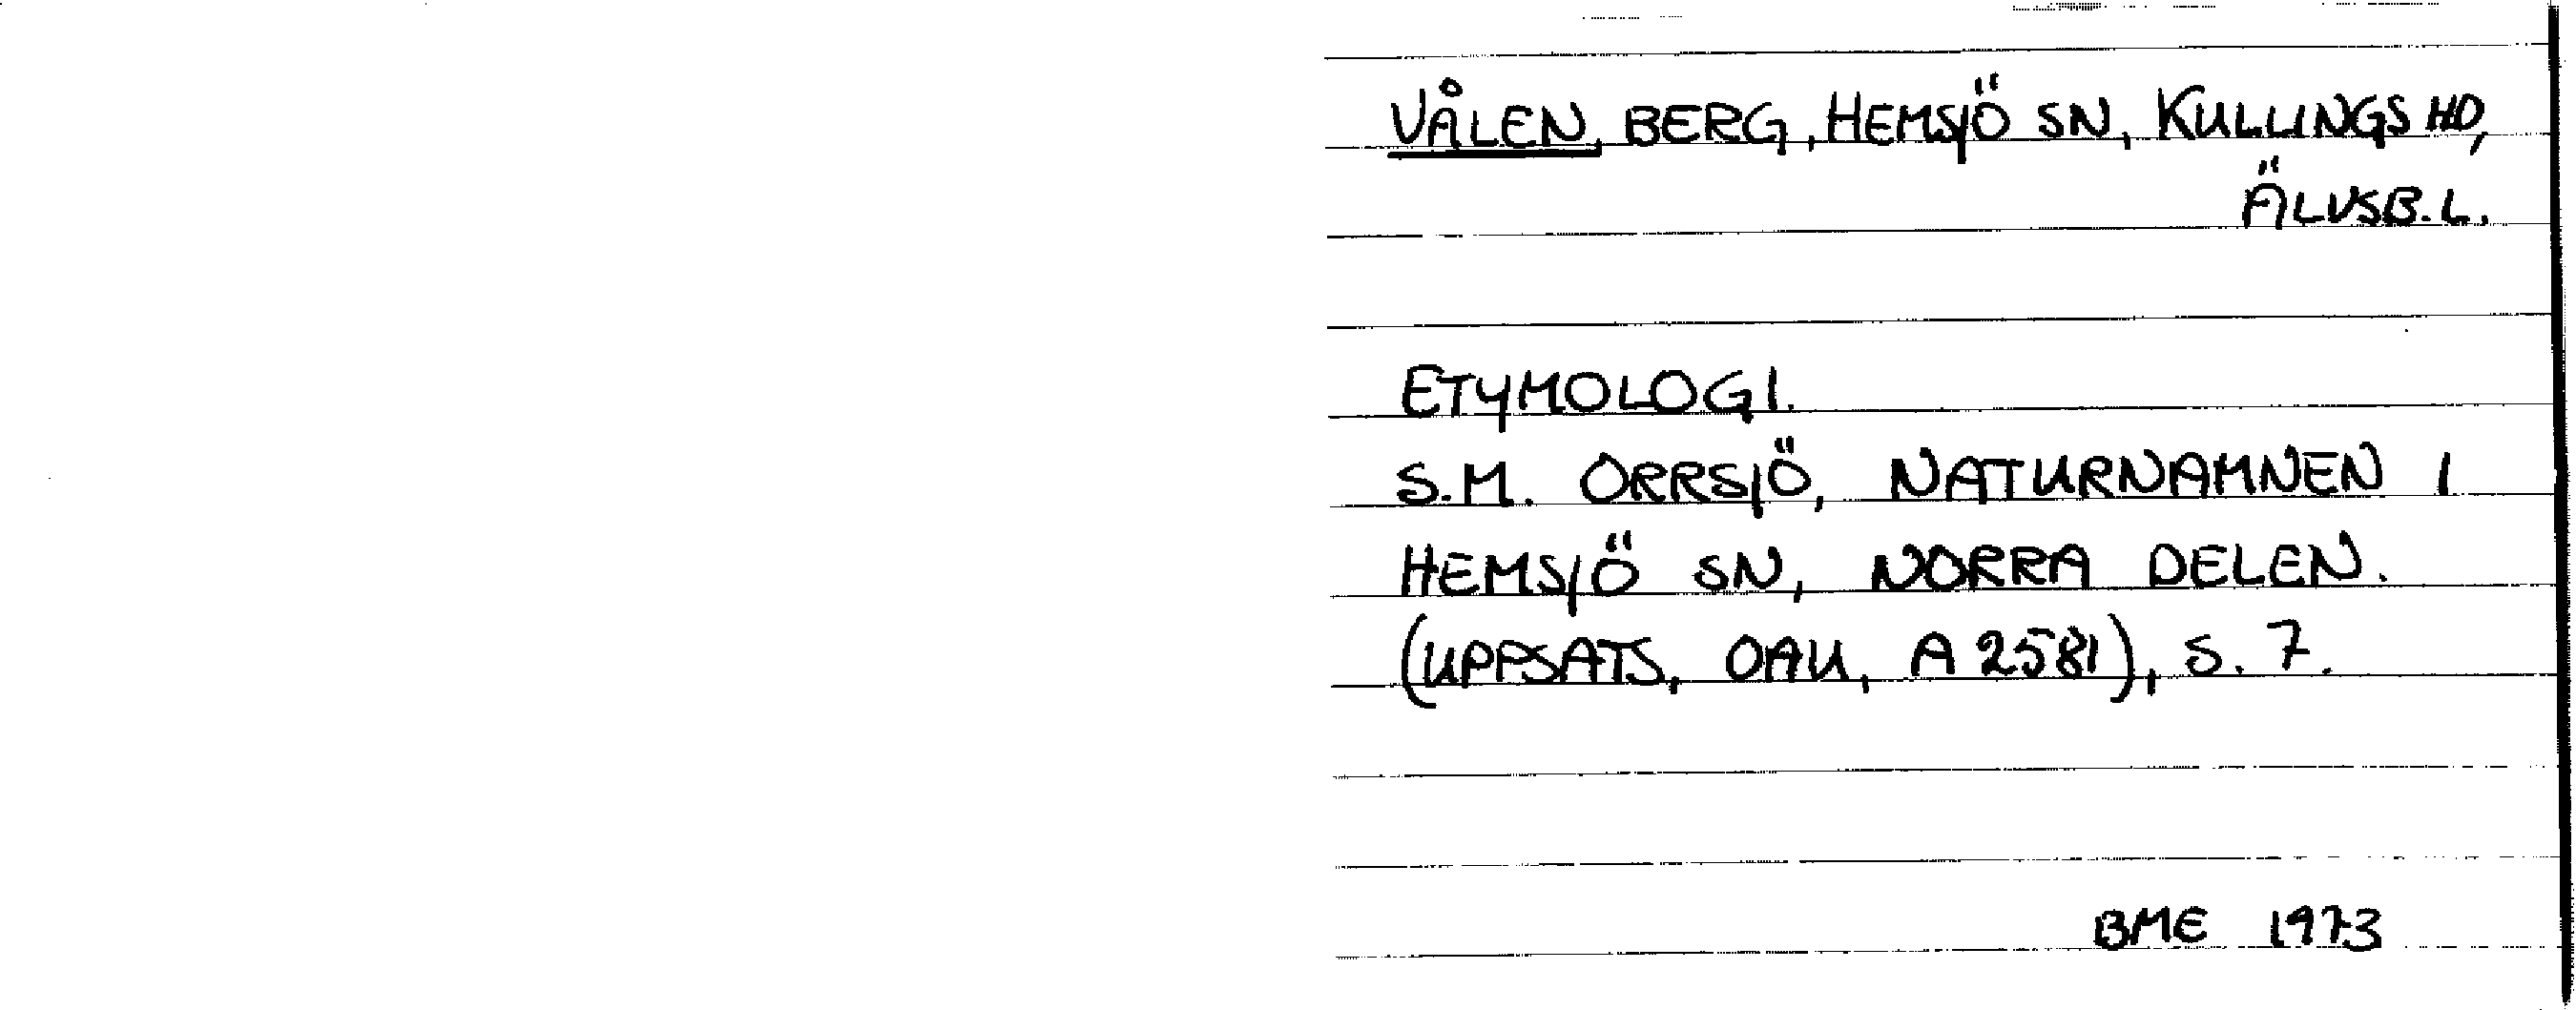 VÅLEN, BERG, HEMSJÖ SN, KULLINGS HD,
ÄLVSB. L.
ETYMOLOGI.
S.M. ORRSJÖ, NATURNAMNEN I
HEMSJÖ SN, NORRA DELEN.
(UPPSATS, OAU, A 2581), S. 7.
BME 1973